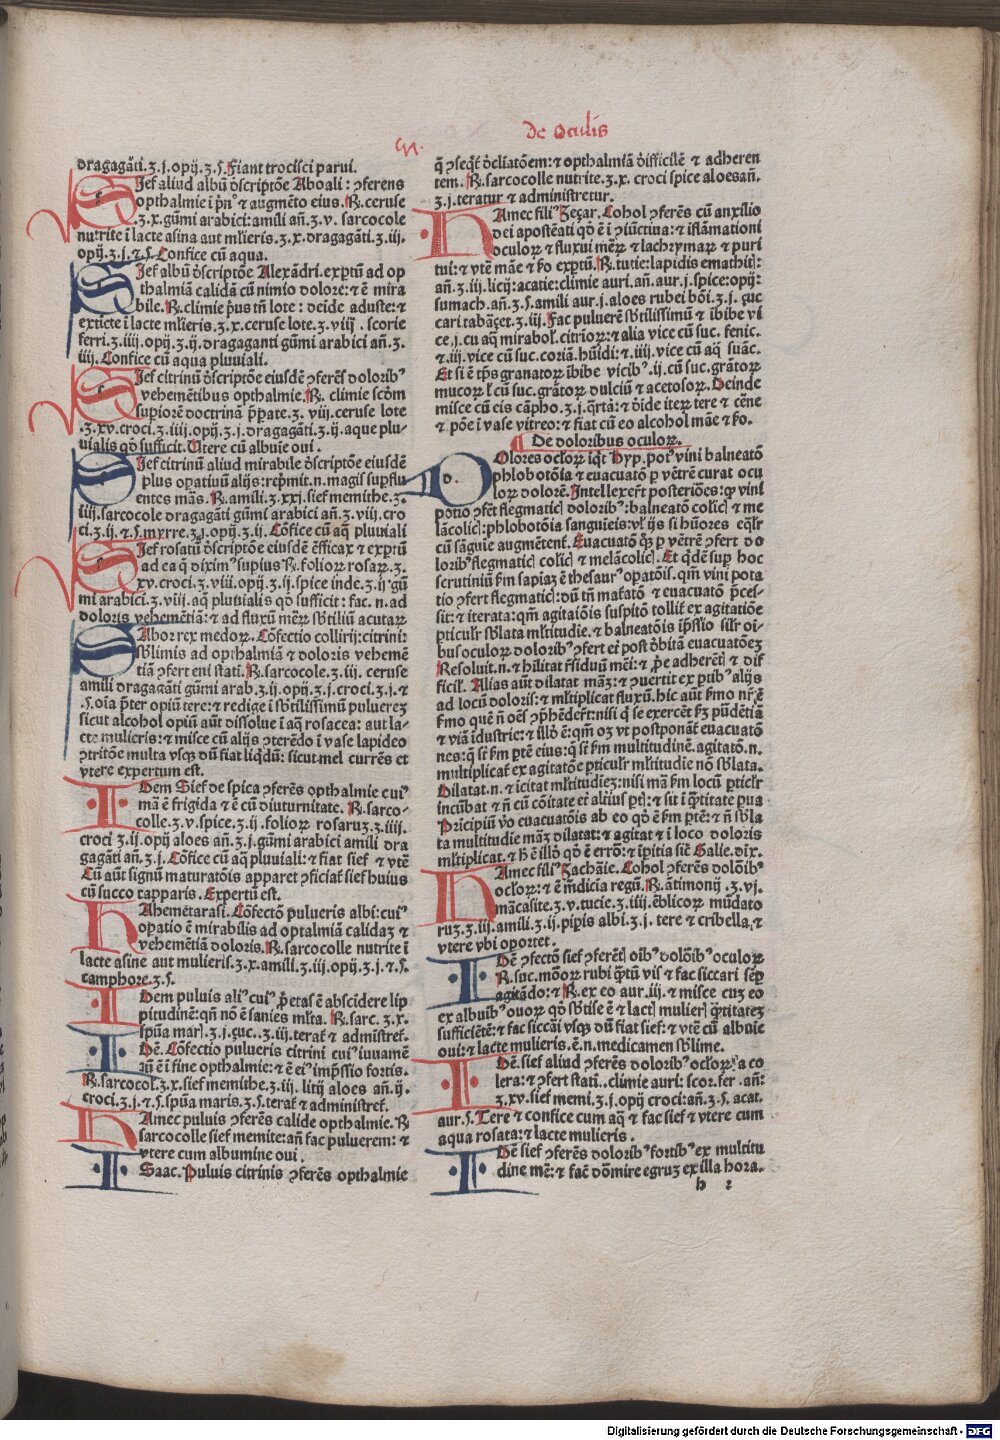 de oculis
dragagāti.ʒ.j.opij.ʒ.s.Fiant trocisci parui.
SIef aliud albū descriptōe Aboali: ꝯferens
opthalmie i pn̄ & augmēto eius. ℞. ceruse
.ʒ.x.gūmi arabici: amili añ.ʒ.v. sarcocole
nutrite i lacte asina aut mlieris.ʒ.x.dragagāti.ʒ.iij.
opij.ʒ.j.&.s.Confice cū aqua.
SIef albū descriptōe Alexādri.exptū ad op
thalmiā calidā cū nimio dolore: & ē mira
bile. ℞. climie
exticte i lacte mlieris.ʒ.x.ceruse lote.ʒ.viij. scorie
ferri.ʒ.iiij.opij.ʒ.ij.dragaganti gūmi arabici añ.ʒ.
iiij. Confice cū aqua pluuiali.
SIef citrinū descriptōe eiusdē ꝯferēs doloribꝰ
vehemētibus opthalmie. ℞. climie scōm
supiorē doctrinā ppate.ʒ.viij.ceruse lote
.ʒ.xv.croci.ʒ.iiij.opij.ʒ.j.dragagāti.ʒ.ij.aque plu-
uialis qd sufficit. Utere cū albuie oui.
SIef citrinū aliud mirabile descriptōe eiusdē
plus opatiuū alijs: repmit.n.magis supflu
entes mās. ℞. amili.ʒ.xxj.sief memithe.ʒ.
iiij.sarcocole dragagāti gūmi arabici añ.ʒ.viij.cro
ci.ʒ.ij.&.s.myrre.ʒ.j.opij.ʒ.ij. Cōfice cū aq̄ pluuiali
SIef rosatū descriptōe eiusdē efficax & exptū
ad ea q̄ diximꝰ supius ℞. folioꝝ rosaꝝ.ʒ.
xv.croci.ʒ.viii.opij.ʒ.ij.spice inde.ʒ.ij gū
mi arabici.ʒ.viij.aq̄ pluuialis qd sufficit: fac.n.ad
doloris vehemētiā: & ad fluxū mēꝝ sbtiliū acutaꝝ
SAbor rex medoꝝ. Cōfectio collirij: citrini:
sblimis ad opthalmiā & doloris vehemē
tiā ꝯfert eni stati. ℞. sarcocole.ʒ.iij. ceruse
amili dragagāti gūmi arab.ʒ.ij.opij.ʒ.j.croci.ʒ.j.&
.s.oia pter opiū tere: & redige i sbtilissimū puluereʒ
sicut alcohol opiū aut dissolue i aq̄ rosacea: aut la-
cte mulieris: & misce cū alijs ꝯterēdo i vase lapideo
ꝯtritōne multa vsqꝫ dū fiat liqdū: sicut mel currēs et
vtere expertum est.
IDem Sief de spica ꝯferēs opthalmie cuiꝰ
mā ē frigida & ē cū diuturnitate. ℞. sarco-
colle.ʒ.v.spice.ʒ.ij.folioꝝ rosaruʒ.ʒ.iiij.
croci ʒ.ij.opij aloes añ.ʒ.j.gūmi arabici amili dra
gagāti añ.ʒ.j. Cōfice cū aq̄ pluuiali: & fiat sief & vtē
Cū aūt signū maturatōis apparet ꝯficiat sief huius
cū succo capparis. Expertū est.
HAhemetarasi. Cōfectō pulueris albi: cuiꝰ
opatio ē mirabilis ad optalmiā calidaʒ &
vehemētiā doloris. ℞. sarcocolle nutrite i
lacte asine aut mulieris.ʒ.x.amili.ʒ.iij.opij.ʒ.j.&.s.
camphore.ʒ.s.
IDem puluis aliꝰ cuiꝰ ppetas ē abscidere lip
pitudinē: qn̄ nō ē sanies mlta. ℞. sarc.ʒ.x.
spūa mar.ʒ.j.ʒuc.ʒ.iij.terat & admistret.
IDē. Cōfectio pulueris citrini cuiꝰ iuuamē
tū ē i fine opthalmie: & ē ei impssio fortis.
℞. sarcocol.ʒ.x.sief memithe.ʒ.iij. litij aloes añ.ij.
croci.ʒ.j.&.s.spūa maris.ʒ.s.terat & administret.
HAmec puluis ꝯferēs calide opthalmie. ℞
sarcocolle sief memite: añ fac puluerem: &
vtere cum albumine oui.
ISaac. Puluis citrinis ꝯferēs opthalmie
tem. ℞. sarcocolle nutrite.ʒ.x. croci spice aloesañ.
ʒ.j.teratur & administretur.
HAmec filiꝰ Zeʒar. Cohol ꝯferēs cū auxilio
dei apostēati qd ē i ꝯiūctiua: & iflāmationi
oculoꝝ & fluxui mēꝝ & lachrymaꝝ & puri
tui: & vtē māe & so exptū. ℞. tutie: lapidis emathit:
añ.ʒ.iij.licij: acatie: climie auri.añ.aur.j.spice: opij:
sumach.añ.ʒ.s.amili aur.j.aloes rubei bōi.ʒ.j.ʒuc
cari tabaʒet.ʒ.iij. Fac puluerē sbtilissimū & ibibe vi
ce.j.cu aq̄ mirabol. citrioꝝ: & alia vice cū suc. fenic.
& .iij. vice cū suc. coriā. hūidi: & .iiij. vice cū aq̄ suāc.
Et si ē tps granatoꝝ ibibe vicibꝰ.ij.cū suc.grātoꝝ
mucoꝝ l cū suc.grātoꝝ dulciū & acetosoꝝ. Deinde
misce cū eis cāpho.ʒ.j.qrtā: & deide iteꝝ tere & cēne
& pōe i vase vitreo: & fiat cū eo alcohol māe & so.
¶ De doloribus oculoꝝ.
DOlores ocloꝝ iqt Hyp. potꝰ vini balneatō
phlobotōia & euacuatō p vētrē curat ocu
loꝝ dolorē. Intellexert posteriōes: qꝫ vini
potio ꝯfert flegmatic doloribꝰ: balneatō colic & me
lācolic: phlobotōia sanguieis: vl ijs si hūores eqlr
cū sāguie augmētent. Euacuatō qꝫ p vētrē ꝯfert do
loribꝰ flegmatic colic & melācolic. Et qdē sup hoc
tio ꝯfert flegmatic: dū tn̄ mafatō & euacuatō pces-
sit: & iterata: qm̄ agitaiōis suspitō tollit ex agitatiōe
pticulr sblata mltitudie. & balneatōis ipssio silr oi-
bus oculoꝝ doloribꝰ ꝯfert
ad locū doloris: & mltiplicat fluxū.
multiplicat ex agitatōe pticulr mltitudie nō sblata.
Dilatat.n.& icitat mltitudineʒ: nisi mā
ta multitudie māʒ dilatat: & agitat & i loco doloris
mltiplicat.
HAmec filiꝰ Zachaie. Cohol ꝯferēs dolōibꝰ
ocloꝝ: & ē mdicia regū. ℞. ātimonij.ʒ.vj.
mācasite.ʒ.v.tucie.ʒ.iiij.eblicoꝝ mūdato
ruʒ.ʒ.iij.amili.ʒ.ij.pipis albi.ʒ.j. tere & cribella,&
vtere vbi oportet.
IDē ꝯfectō sief ꝯferēt oibꝰ dolōibꝰ oculoꝝ
℞. suc. mōoꝝ rubi qtū vis & fac siccari sēp
agitādo: & ℞. ex eo aur.iij. & misce cuʒ eo
ex albuibꝰ ouoꝝ qd sbtile ē & lact mulier qtitateʒ
sufficiētē: & fac siccāi vsqꝫ dū fiat sief: & vtē cū albuie
oui: & lacte mulieris.ē.n.medicamen sblime.
IDē. sief aliud ꝯferēs doloribꝰ ocloꝝ a co
lera: & ꝯfert stati. climie auri: scor.fer.añ:
ʒ.xv.sief memi.ʒ.j.opij croci: añ.ʒ.s. acat.
aur.s. Tere & confice cum aq̄ & fac sief & vtere cum
aqua rosata: & lacte mulieris.
IDē sief ꝯferēs doloribꝰ fortibꝰ ex multitu
dine mē: & fac dōmire egruʒ ex illa hora.
h 2
Digitalisierung gefördert durch die Deutsche Forschungsgemeinschaft - DFG